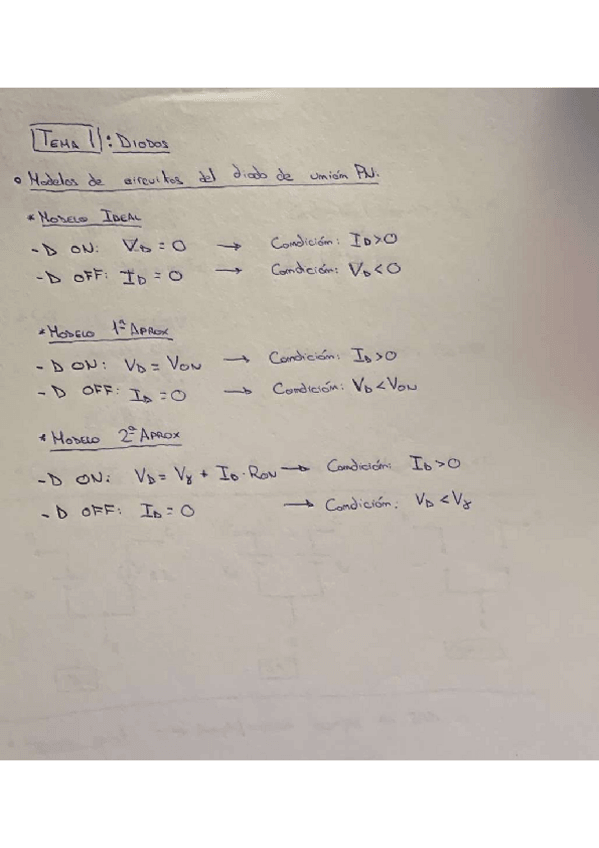 TEMA 1: DIODOS
• Modelos de circuitos del diodo de unión PN.
* MODELO IDEAL
- D ON: V_D = 0 → Condición: I_D > 0
- D OFF: I_D = 0 → Condición: V_D < 0
* MODELO 1ª APROX
- D ON: V_D = V_ON → Condición: I_D > 0
- D OFF: I_D = 0 → Condición: V_D < V_ON
* MODELO 2ª APROX
- D ON: V_D = V_γ + I_D · R_ON → Condición: I_D > 0
- D OFF: I_D = 0 → Condición: V_D < V_γ